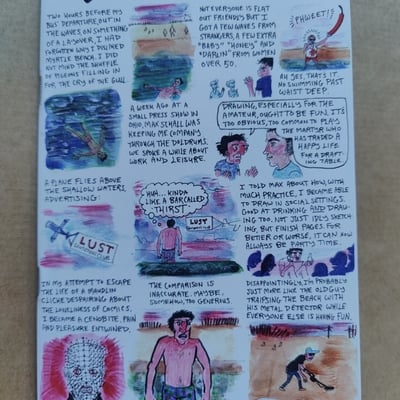 TWO HOURS BEFORE MY
BUS' DEPARTURE, OUT IN
THE WAVES, ON SOMETHING
OF A LAYOVER, I HAD
FORGOTTEN WHY I DISLIKED
MYRTLE BEACH. I DID
NOT MIND THE SHUFFLE
OF PIGEONS FILLING IN
FOR THE CRY OF THE GULL.
NOT EVERYONE IS FLAT
OUT FRIENDLY BUT I
GOT A FEW WAVES FROM
STRANGERS, A FEW EXTRA
"BABY" "HONEY" AND
"DARLIN'" FROM WOMEN
OVER 50.
PHWEET!
AH YES, THAT'S IT.
NO SWIMMING PAST
WAIST DEEP.
A WEEK AGO AT A
SMALL PRESS SHOW IN
OHIO, MAX SCHALL WAS
KEEPING ME COMPANY
THROUGH THE DOLDRUMS.
WE SPOKE A WHILE ABOUT
WORK AND LEISURE.
DRAWING, ESPECIALLY FOR THE
AMATEUR, OUGHT TO BE FUN. IT'S
TOO OBVIOUS, TOO COMMON TO PLAY
THE MARTYR WHO
HAS TRADED A
HAPPY LIFE
FOR A DRAFT-
ING TABLE.
A PLANE FLIES ABOVE
THE SHALLOW WATERS,
ADVERTISING:
LUST
HUH... KINDA
LIKE A BAR CALLED
THIRST
LUST
I TOLD MAX ABOUT HOW, WITH
MUCH PRACTICE, I BECAME ABLE
TO DRAW IN SOCIAL SETTINGS.
GOOD AT DRINKING AND DRAW-
ING TOO. NOT JUST IDLY SKETCH-
ING BUT FINISH PAGES. FOR
BETTER OR WORSE, IT CAN NOW
ALWAYS BE PARTY TIME.
IN MY ATTEMPT TO ESCAPE
THE LIFE OF A MAUDLIN
CLICHE DESPAIRING ABOUT
THE LONELINESS OF COMICS,
I BECAME A CENOBITE, PAIN
AND PLEASURE ENTWINED.
THE COMPARISON IS
INACCURATE. MAYBE,
SOMEHOW, TOO GENEROUS.
DISAPPOINTINGLY, I'M PROBABLY
JUST MORE LIKE THE OLD GUY
TRAIPSING THE BEACH WITH
HIS METAL DETECTOR WHILE
EVERYONE ELSE IS HAVING FUN.